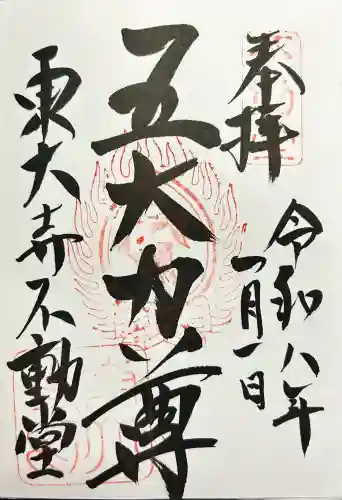 奉拝
令和八年
一月一日
五大力尊
東大寺不動堂